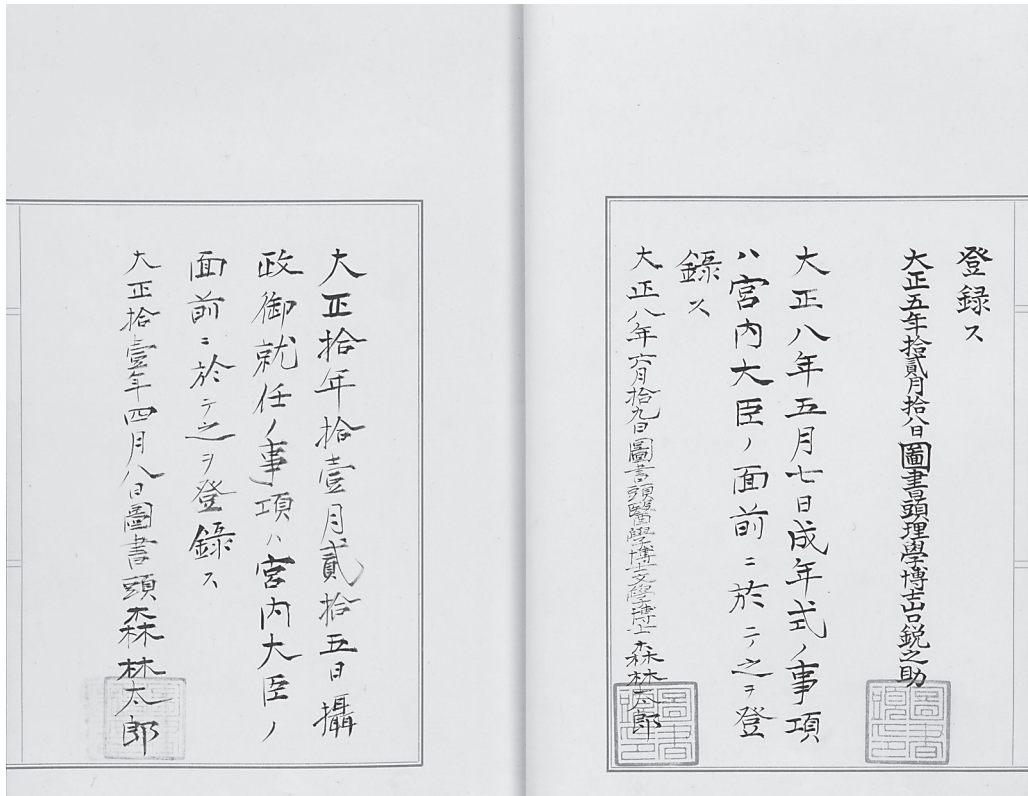 登録ス
大正五年拾貳月拾八日圖書頭理學博士山口鋭之助
大正八年五月七日成年式ノ事項
ハ宮内大臣ノ面前ニ於テ之ヲ登
録ス
大正八年六月拾九日圖書頭醫學博士文學博士森林太郎
大正拾年拾壹月貳拾五日攝
政御就任ノ事項ハ宮内大臣ノ
面前ニ於テ之ヲ登録ス
大正拾壹年四月八日圖書頭森林太郎